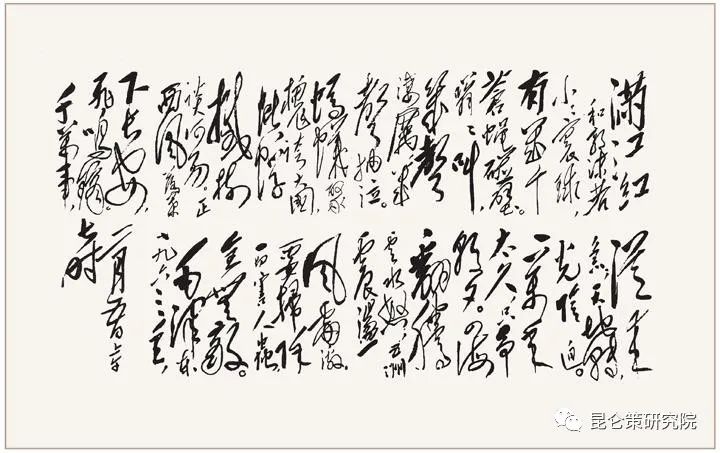 满江红
和郭沫若
小小寰球,
有几个
苍蝇碰壁。
嗡嗡叫,
几声
凄厉,几
声抽泣。
蚂蚁缘
槐夸大国,
蚍蜉
撼树
谈何易。正
西风落叶
下长安,
飞鸣镝。
千万事,
从来
急。天地转,
光阴迫。
一万年
太久,只争
朝夕。四海
翻腾
云水怒,五洲
震荡
风雷激。
要扫除
一切害人虫,
全无敌。
毛泽东
一九六三年
二月五日上午
七时
昆仑策研究院